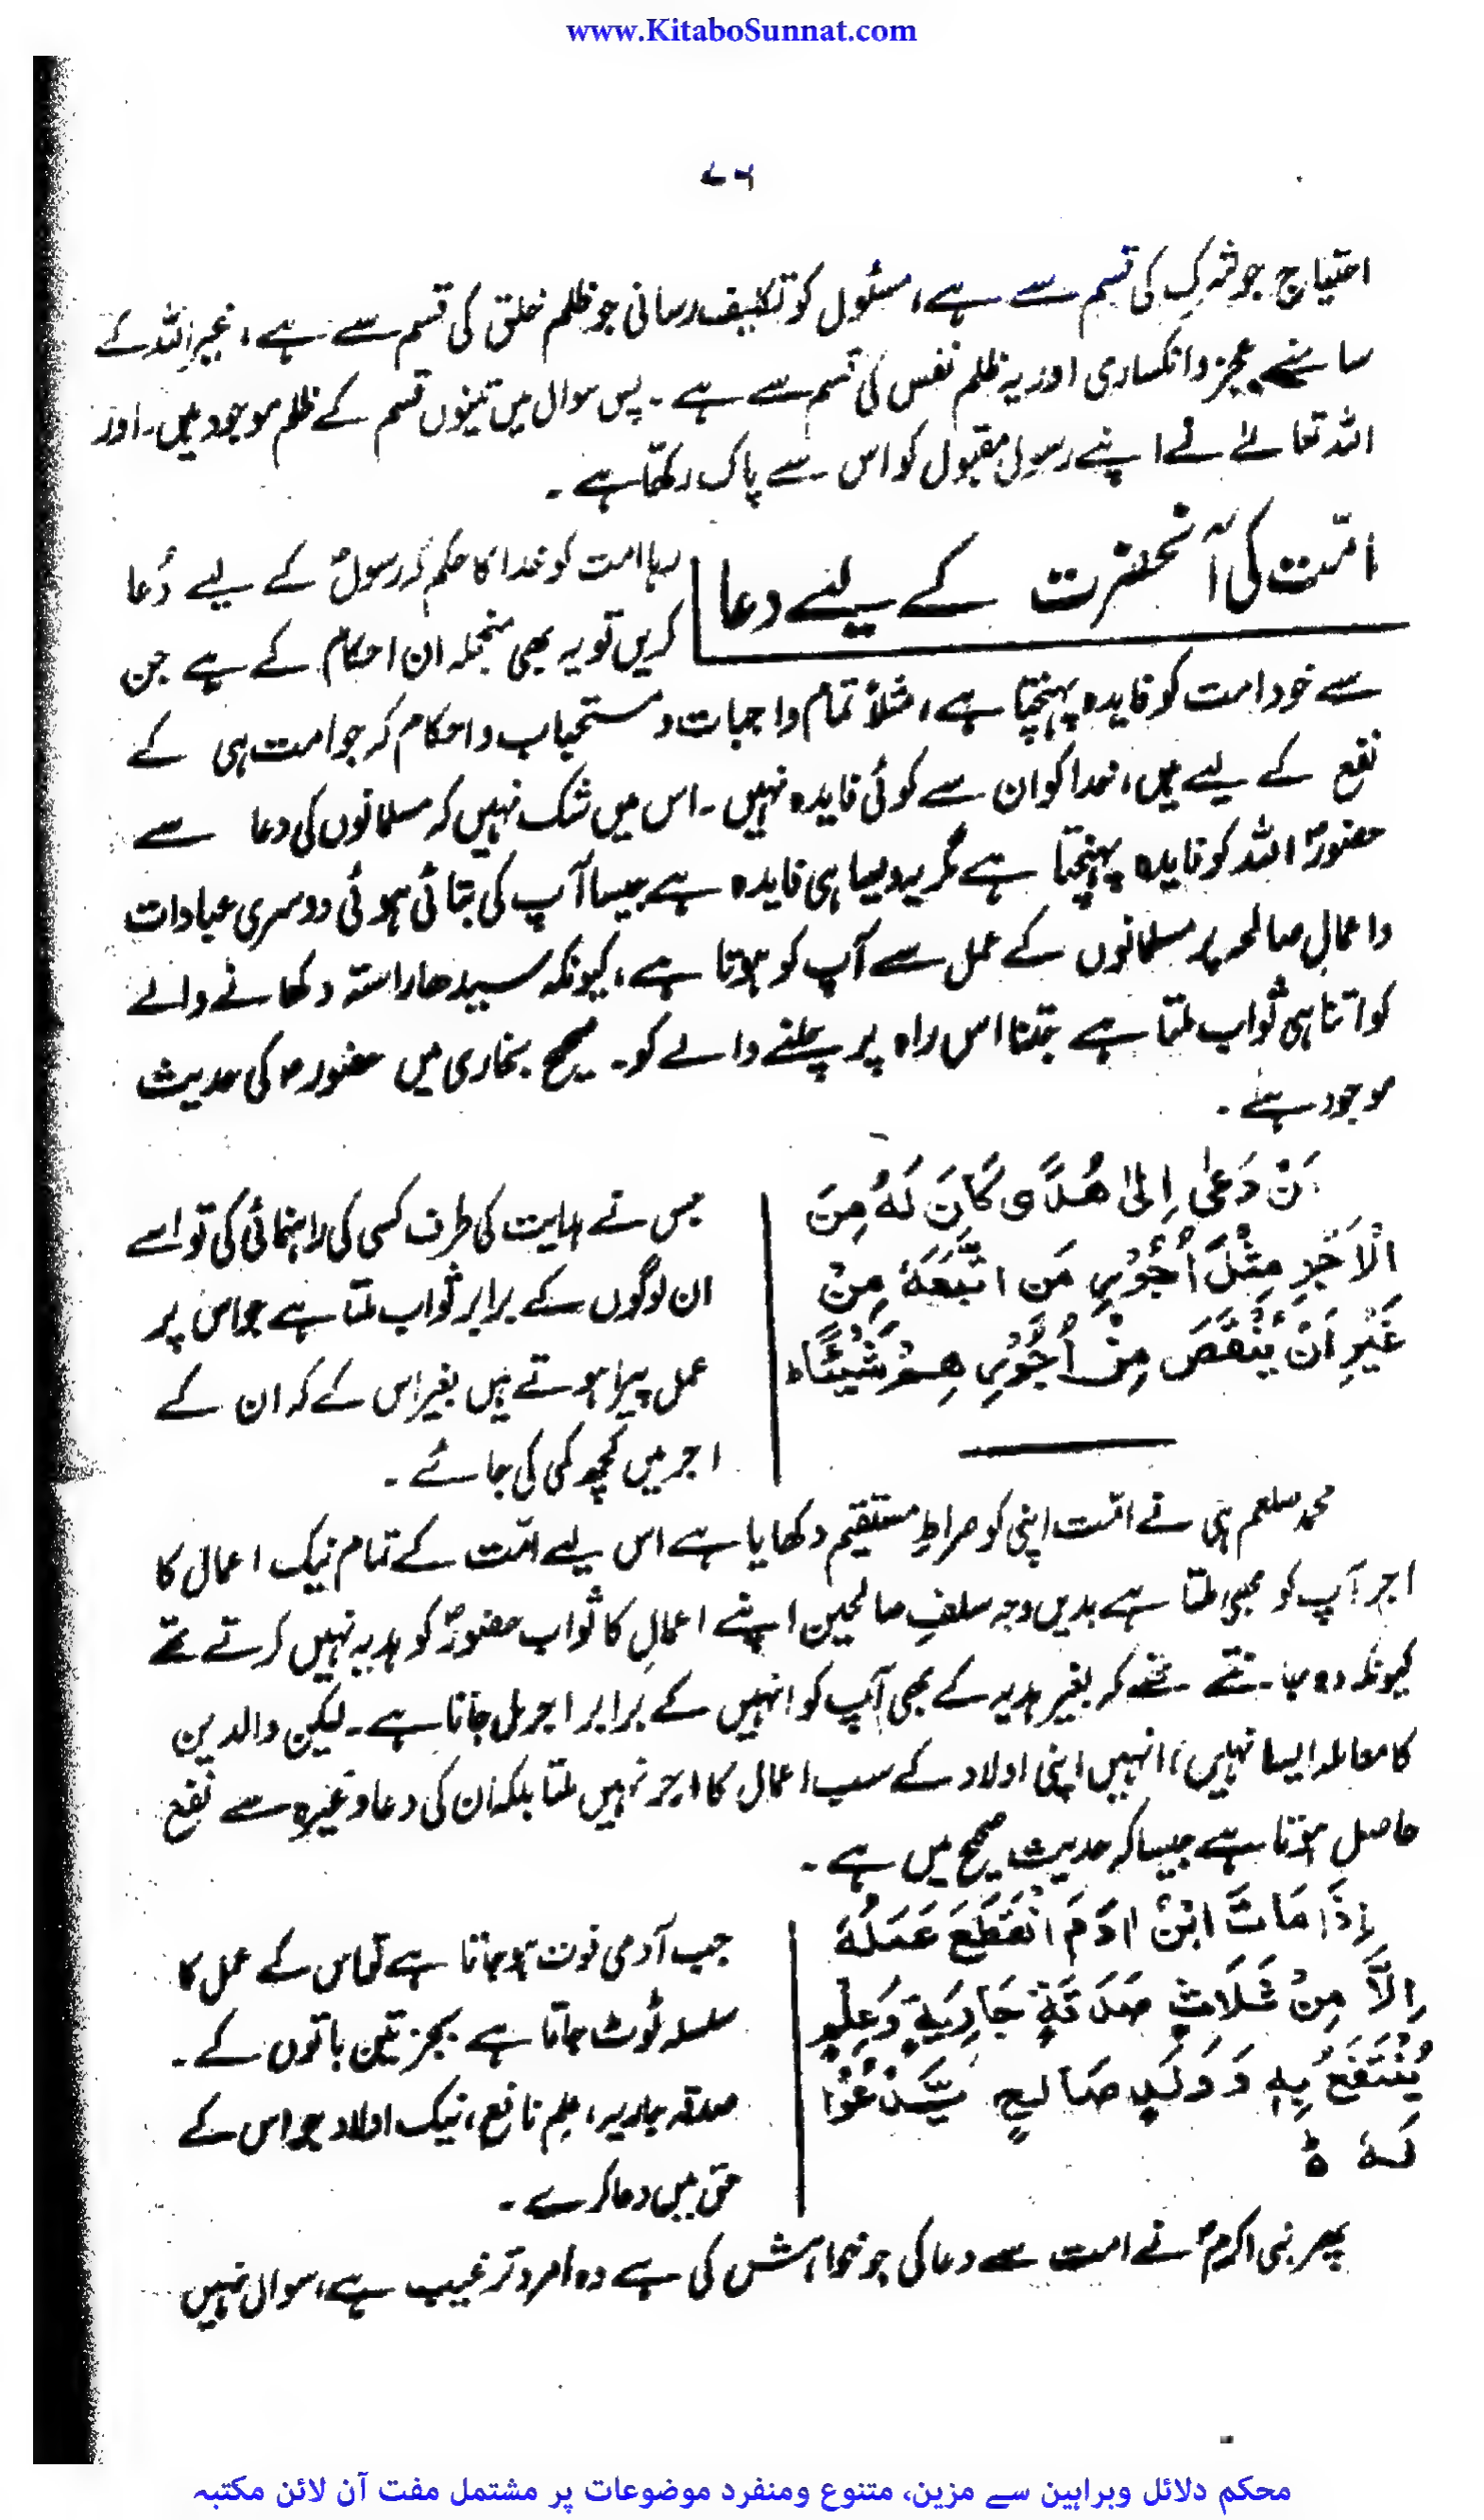 www.KitaboSunnat.com
۷۶
احتیاج جو شرک کی قسم سے ہے، مسئول کو تکلیف رسانی جو ظلم خلق کی قسم سے ہے، غیر اللہ کے
سامنے عجز و انکساری اور یہ ظلم نفس کی قسم سے ہے۔ پس سوال میں تینوں قسم کے ظلم موجود ہیں۔ اور
اللہ تعالےٰ نے اپنے رسول مقبول کو اس سے پاک رکھتا ہے۔
امّت کی آنحضرت کے لیے دعا
رہا امت کو خدا کا حکم کہ رسولؐ کے لیے دُعا
کریں تو یہ بھی منجملہ ان احکام کے ہے جن
سے خود امت کو فایدہ پہنچتا ہے، مثلاً تمام واجبات و مستحباب و احکام کہ جو امت ہی کے
نفع کے لیے ہیں، خدا کو ان سے کوئی فایدہ نہیں۔ اس میں شک نہیں کہ مسلمانوں کی دعا سے
حضورؐ اللہ کو فایدہ پہنچتا ہے مگر یہ ویسا ہی فایدہ ہے جیسا آپ کی بتائی ہوئی دوسری عبادات
و اعمالِ صالحہ پر مسلمانوں کے عمل سے آپ کو ہوتا ہے، کیونکہ سیدھا راستہ دکھانے والے
کو اتنا ہی ثواب ملتا ہے جتنا اس راہ پر چلنے والے کو۔ صحیح بخاری میں حضورؐ کی حدیث
موجود ہے۔
مَنْ دَعٰى اِلىٰ هُدًى كَانَ لَهٗ مِنَ
الْاَجْرِ مِثْلَ اُجُوْرِ مَنِ اتَّبَعَهٗ مِنْ
غَيْرِ اَنْ يَنْقُصَ مِنْ اُجُوْرِ هِمْ شَيْئًا ط
جس نے ہدایت کی طرف کسی کی راہنمائی کی تو اسے
ان لوگوں کے برابر ثواب ملتا ہے جو اس پر
عمل پیرا ہوتے ہیں بغیر اس کے کہ ان کے
اجر میں کچھ کمی کی جائے۔
محمد صلعم ہی نے امّت اپنی کو صراطِ مستقیم دکھایا ہے اس لیے امّت کے تمام نیک اعمال کا
اجر آپ کو بھی ملتا ہے بدیں وجہ سلفِ صالحین اپنے اعمال کا ثواب حضورؐ کو ہدیہ نہیں کرتے تھے
کیونکہ وہ جانتے تھے کہ بغیر ہدیہ کے بھی آپ کو انہیں کے برابر اجر مل جاتا ہے۔ لیکن والدین
کا معاملہ ایسا نہیں، انہیں اپنی اولاد کے سب اعمال کا اجر نہیں ملتا بلکہ ان کی دعا وغیرہ سے نفع
حاصل ہوتا ہے جیسا کہ حدیث صحیح میں ہے۔
اِذَا مَاتَ ابْنُ اٰدَمَ انْقَطَعَ عَمَلُهٗ
اِلَّا مِنْ ثَلَاثٍ صَدَقَةٍ جَارِيَةٍ وَعِلْمٍ
يُنْتَفَعُ بِهٖ وَوَلَدٍ صَالِحٍ يَّدْعُوْا
لَهٗ ط
جب آدمی فوت ہو جاتا ہے تو اس کے عمل کا
سلسلہ ٹوٹ جاتا ہے بجز تین باتوں کے۔
صدقہ جاریہ، علم نافع، نیک اولاد جو اس کے
حق میں دعا کرے۔
پھر نبی اکرمؐ نے امت سے دعا کی جو خواہش کی ہے وہ امر و ترغیب ہے، سوال نہیں
محکم دلائل وبراہین سے مزین، متنوع ومنفرد موضوعات پر مشتمل مفت آن لائن مکتبہ